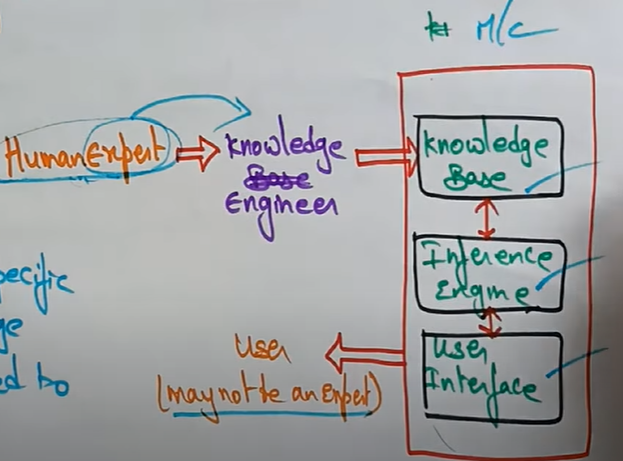 M/C
Human Expert
Knowledge
Base
Engineer
Knowledge
Base
Inference
Engine
User
Interface
User
(may not be an expert)
ecific
ge
ed to